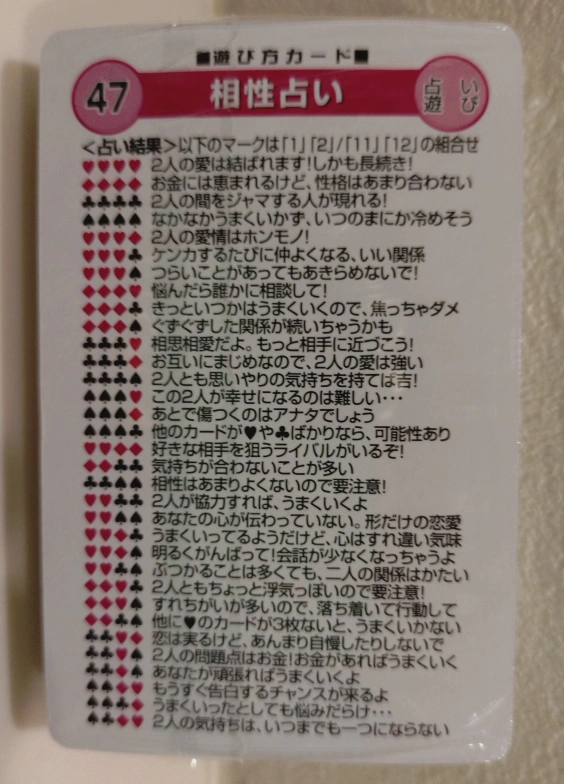 ■遊び方カード■
47 相性占い 占い遊び
<占い結果>以下のマークは「1」「2」/「11」「12」の組合せ
♥♥♥♥ 2人の愛は結ばれます!しかも長続き!
♦♦♦♦ お金には恵まれるけど、性格はあまり合わない
♣♣♣♣ 2人の間をジャマする人が現れる!
♠♠♠♠ なかなかうまくいかず、いつのまにか冷めそう
♥♥♥♦ 2人の愛情はホンモノ!
♥♥♥♣ ケンカするたびに仲よくなる、いい関係
♥♥♥♠ つらいことがあってもあきらめないで!
♦♦♦♥ 悩んだら誰かに相談して!
♦♦♦♣ きっといつかはうまくいくので、焦っちゃダメ
♦♦♦♠ ぐずぐずした関係が続いちゃうかも
♣♣♣♥ 相思相愛だよ。もっと相手に近づこう!
♣♣♣♦ お互いにまじめなので、2人の愛は強い
♣♣♣♠ 2人とも思いやりの気持ちを持てば吉!
♠♠♠♥ この2人が幸せになるのは難しい・・・
♠♠♠♦ あとで傷つくのはアナタでしょう
♠♠♠♣ 他のカードが♥や♣ばかりなら、可能性あり
♥♥♦♦ 好きな相手を狙うライバルがいるぞ!
♦♦♣♣ 気持ちが合わないことが多い
♣♣♠♠ 相性はあまりよくないので要注意!
♥♥♣♣ 2人が協力すれば、うまくいくよ
♥♥♠♠ あなたの心が伝わっていない。形だけの恋愛
♥♥♦♣ うまくいってるようだけど、心はすれ違い気味
♥♥♦♠ 明るくがんばって!会話が少なくなっちゃうよ
♥♥♣♠ ぶつかることは多くても、二人の関係はかたい
♦♦♥♣ 2人ともちょっと浮気っぽいので要注意!
♦♦♥♠ すれちがいが多いので、落ち着いて行動して
♦♦♣♠ 他に♥のカードが3枚ないと、うまくいかない
♣♣♥♦ 恋は実るけど、あんまり自慢したりしないで
♣♣♥♠ 2人の問題点はお金!お金があればうまくいく
♣♣♦♠ あなたが頑張ればうまくいくよ
♠♠♥♦ もうすぐ告白するチャンスが来るよ
♠♠♣♥ うまくいったとしても悩みだらけ・・・
♠♠♣♦ 2人の気持ちは、いつまでも一つにならない